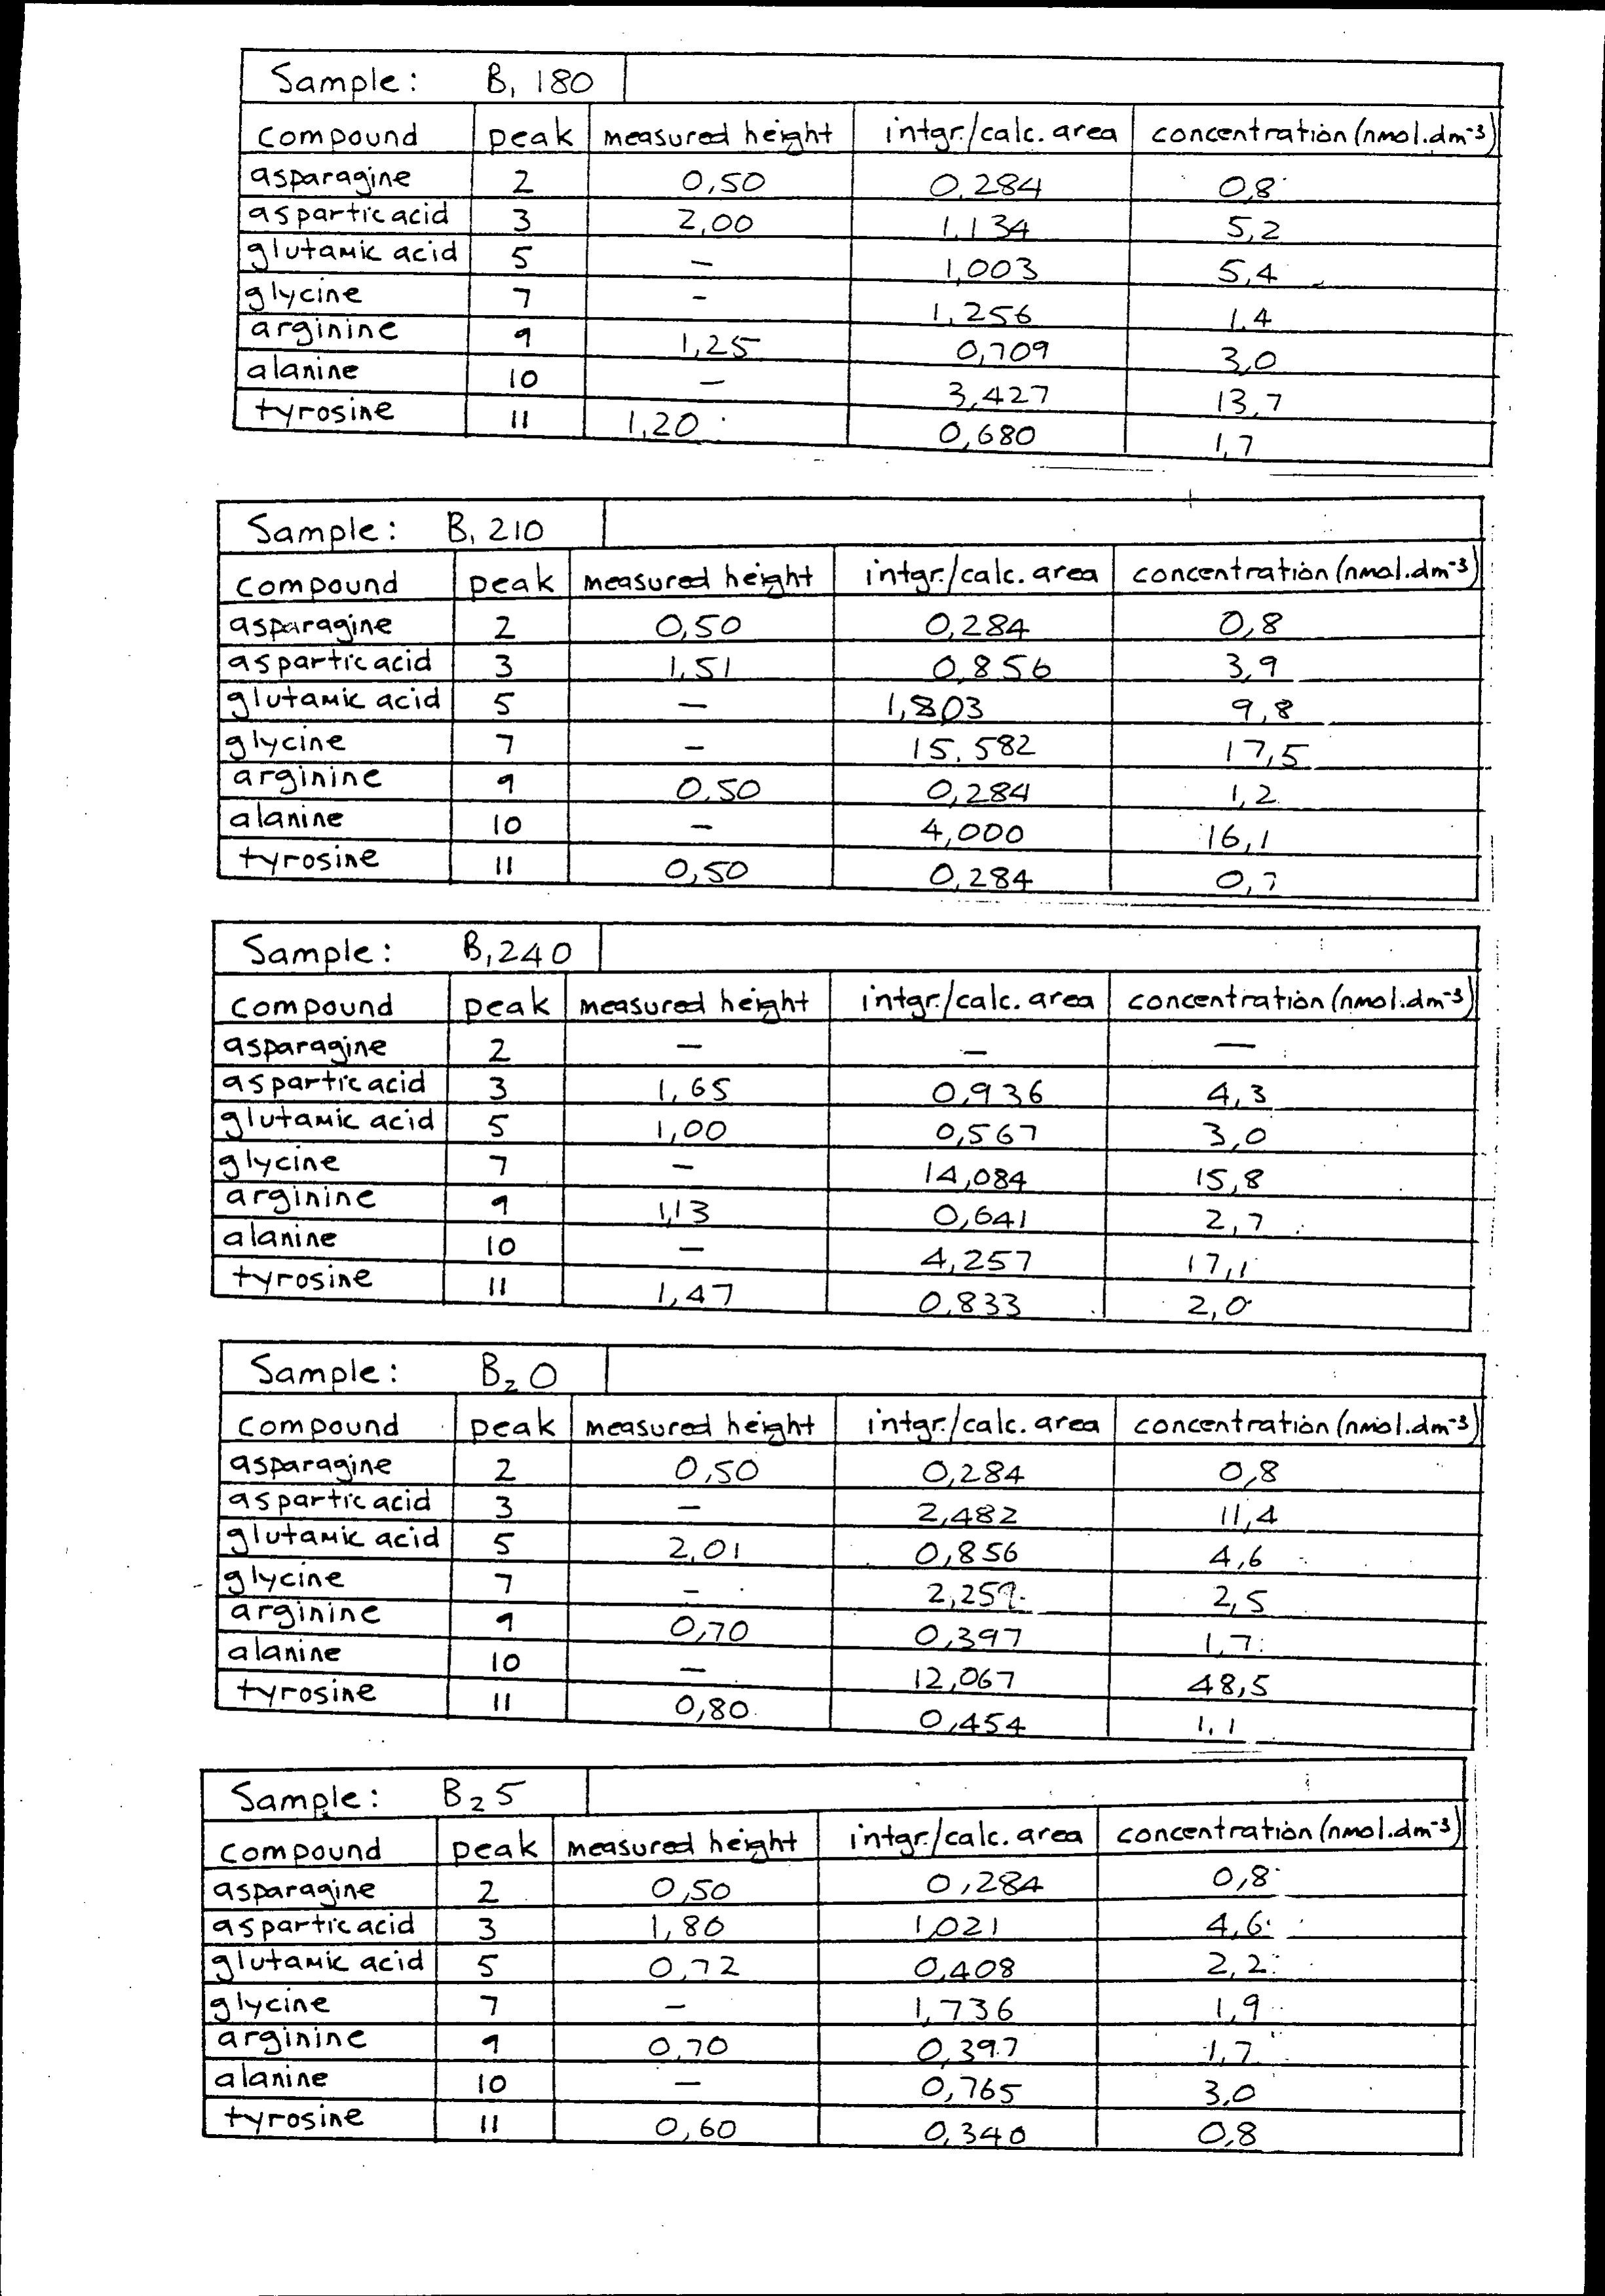 Sample: B₁ 180
compound peak measured height intgr./calc. area concentration (nmol.dm⁻³)
asparagine 2 0,50 0,284 0,8
aspartic acid 3 2,00 1,134 5,2
glutamic acid 5 — 1,003 5,4
glycine 7 — 1,256 1.4
arginine 9 1,25 0,709 3,0
alanine 10 — 3,427 13,7
tyrosine 11 1,20 0,680 1,7
Sample: B₁ 210
compound peak measured height intgr./calc. area concentration (nmol.dm⁻³)
asparagine 2 0,50 0,284 0,8
aspartic acid 3 1,51 0,856 3,9
glutamic acid 5 — 1,803 9,8
glycine 7 — 15.582 17,5
arginine 9 0.50 0,284 1,2
alanine 10 — 4,000 16,1
tyrosine 11 0,50 0,284 0,7
Sample: B₁ 240
compound peak measured height intgr./calc. area concentration (nmol.dm⁻³)
asparagine 2 — — —
aspartic acid 3 1,65 0,936 4,3
glutamic acid 5 1,00 0,567 3,0
glycine 7 — 14,084 15,8
arginine 9 1,13 0,641 2,7
alanine 10 — 4,257 17,1
tyrosine 11 1,47 0,833 2,0
Sample: B₂ 0
compound peak measured height intgr./calc. area concentration (nmol.dm⁻³)
asparagine 2 0,50 0,284 0,8
aspartic acid 3 — 2,482 11,4
glutamic acid 5 2,01 0,856 4,6
glycine 7 — 2,259 2,5
arginine 9 0,70 0,397 1,7
alanine 10 — 12,067 48,5
tyrosine 11 0,80 0,454 1,1
Sample: B₂ 5
compound peak measured height intgr./calc. area concentration (nmol.dm⁻³)
asparagine 2 0,50 0,284 0,8
aspartic acid 3 1,80 1,021 4,6
glutamic acid 5 0,72 0,408 2,2
glycine 7 — 1,736 1,9
arginine 9 0,70 0,397 1,7
alanine 10 — 0,765 3,0
tyrosine 11 0,60 0,340 0,8